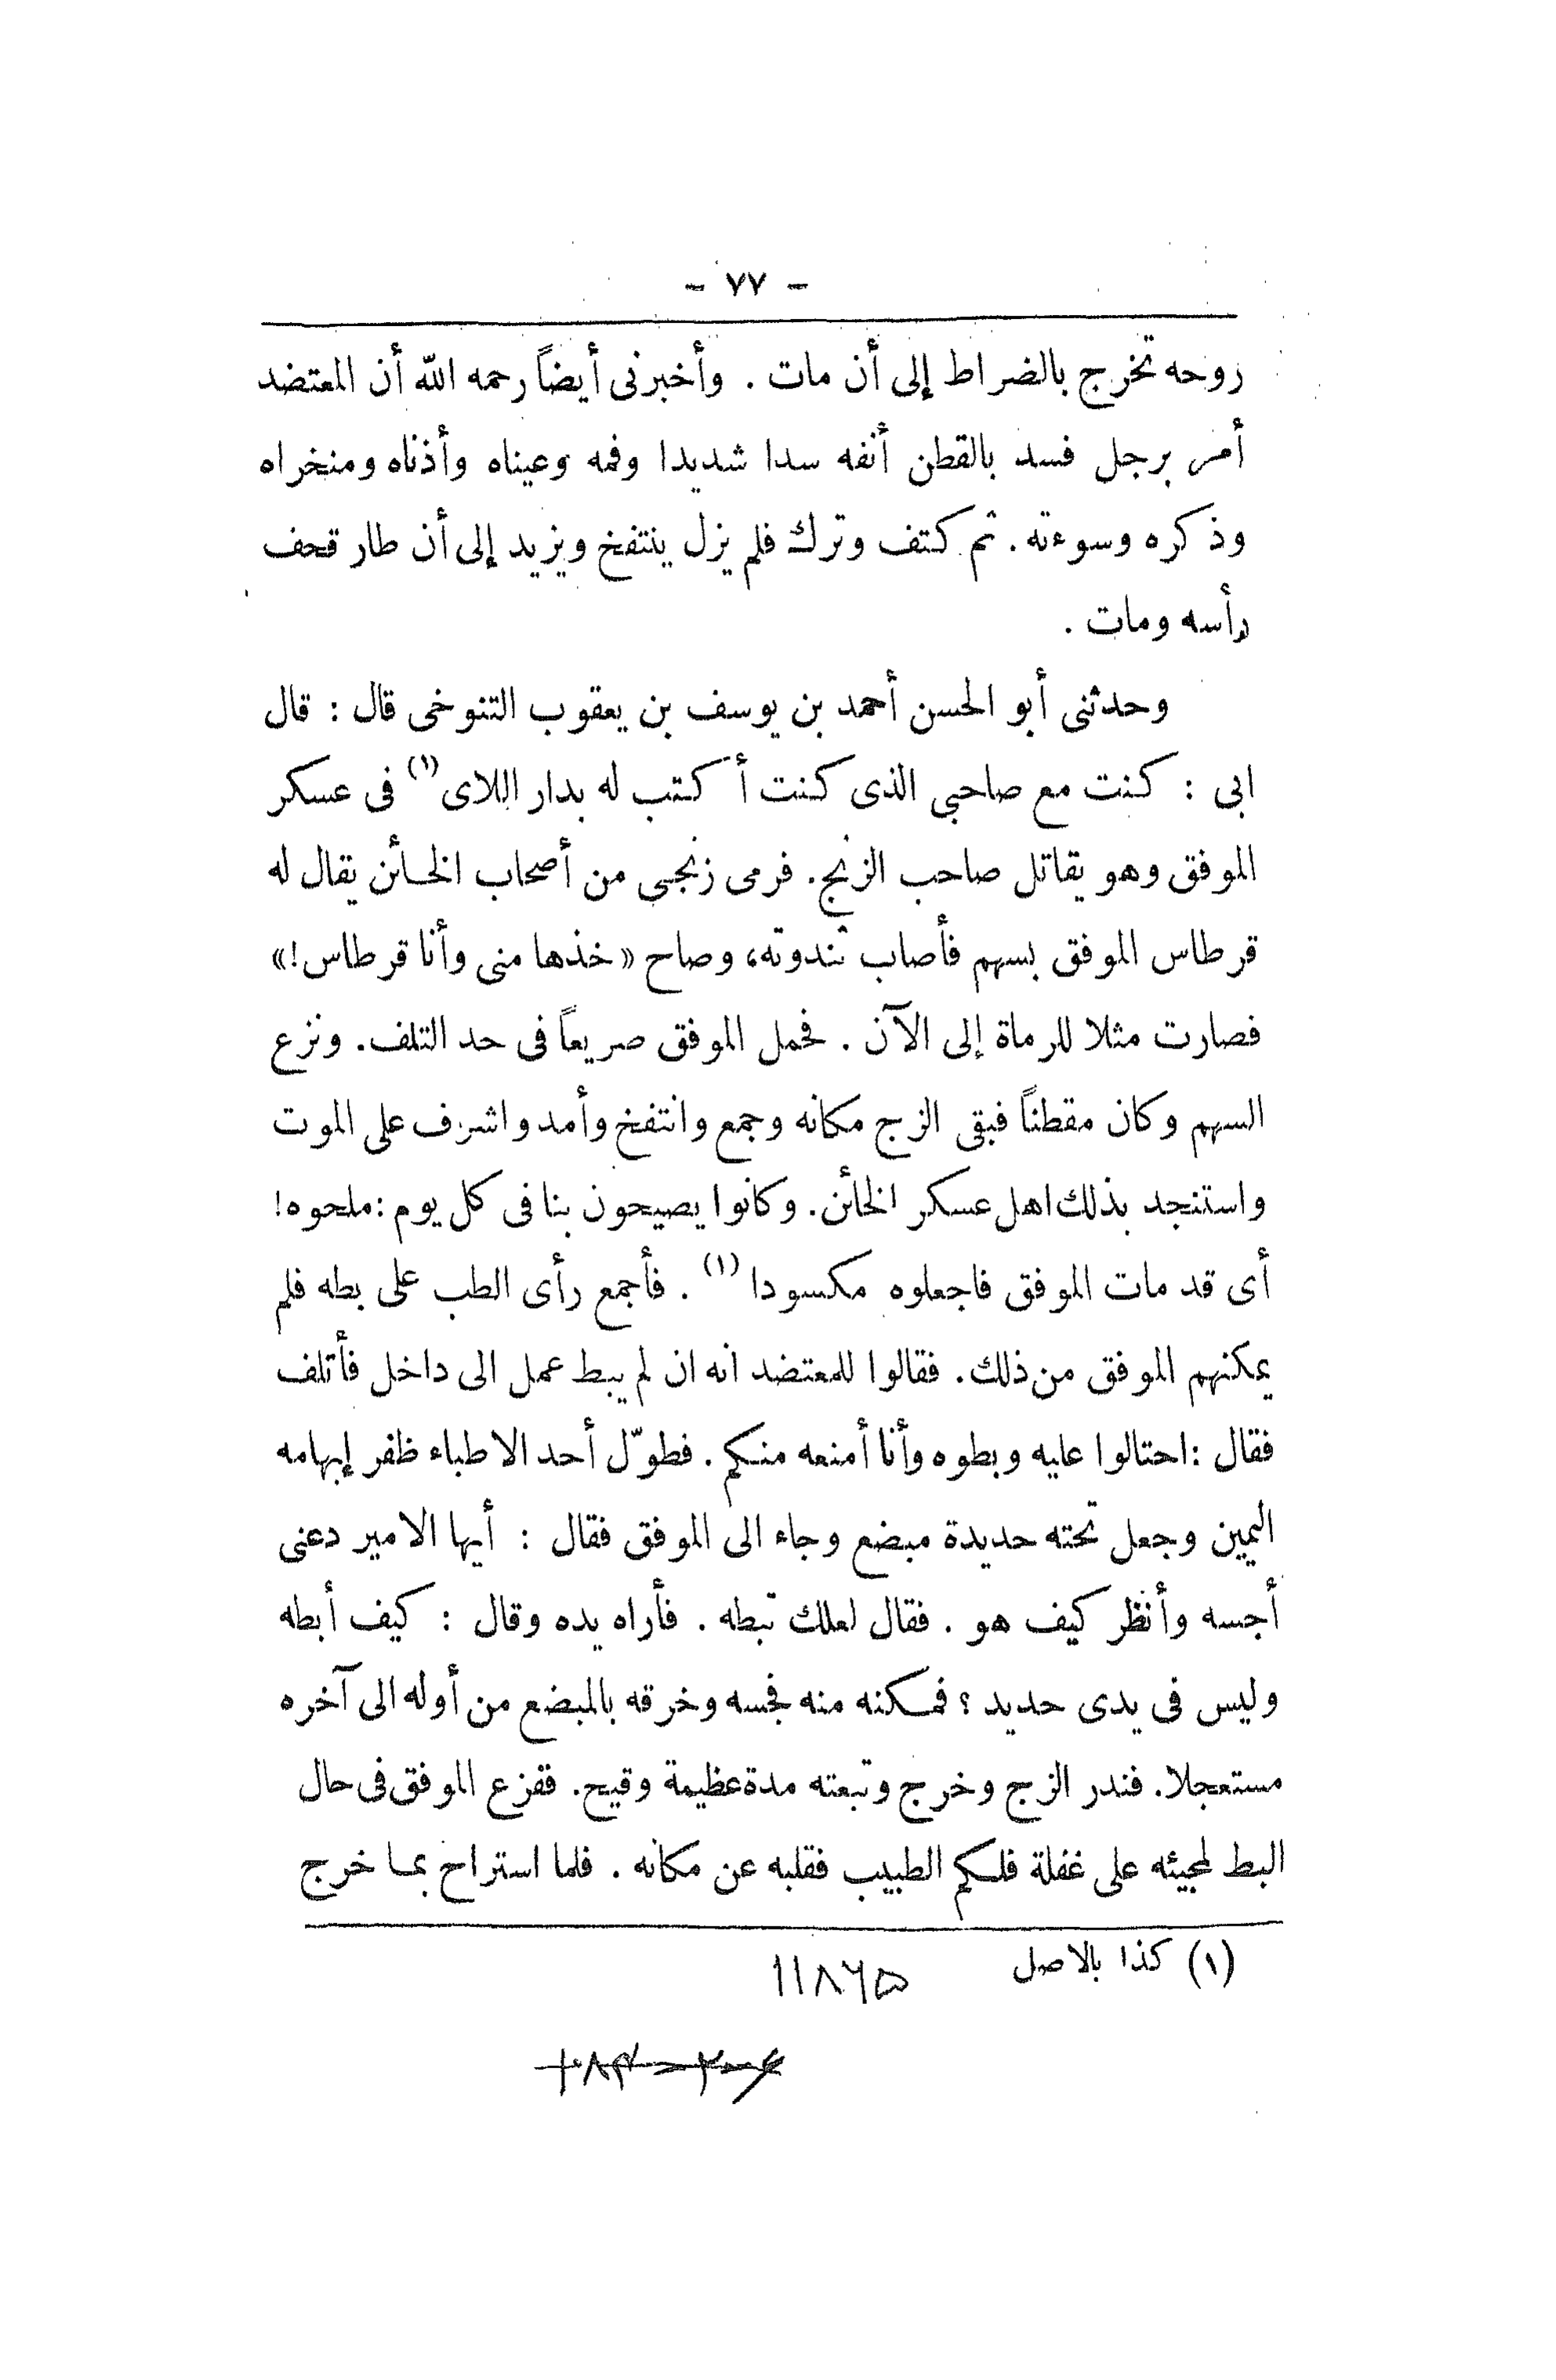 - ٧٧ -
روحه تخرج بالضراط إلى أن مات . وأخبرنى أيضاً رحمه الله أن المعتضد
أمر برجل فسد بالقطن أنفه سدا شديدا وفمه وعيناه وأذناه ومنخراه
وذكره وسوءته . ثم كتف وترك فلم يزل ينتفخ ويزيد إلى أن طار قحف
رأسه ومات .
وحدثنى أبو الحسن أحمد بن يوسف بن يعقوب التنوخى قال : قال
ابى : كنت مع صاحبي الذى كنت أكتب له بدار اللاى (١) فى عسكر
الموفق وهو يقاتل صاحب الزنج . فرمى زنجى من أصحاب الخائن يقال له
قرطاس الموفق بسهم فأصاب ثندوته، وصاح «خذها منى وأنا قرطاس!»
فصارت مثلا للرماة إلى الآن . فحمل الموفق صريعاً فى حد التلف . ونزع
السهم وكان مقطناً فبقى الزج مكانه وجمع وانتفخ وأمد واشرف على الموت
واستنجد بذلك اهل عسكر الخائن. وكانوا يصيحون بنا فى كل يوم : ملحوه!
أى قد مات الموفق فاجعلوه مكسودا (١) . فأجمع رأى الطب على بطه فلم
يمكنهم الموفق من ذلك . فقالوا للمعتضد انه ان لم يبط عمل الى داخل فأتلف
فقال : احتالوا عليه وبطوه وأنا أمنعه منكم . فطوّل أحد الاطباء ظفر إبهامه
اليمين وجعل تحته حديدة مبضع وجاء الى الموفق فقال : أيها الامير دعنى
أجسه وأنظر كيف هو . فقال لعلك تبطه . فأراه يده وقال : كيف أبطه
وليس فى يدى حديد ؟ فمكنه منه فجسه وخرقه بالمبضع من أوله الى آخره
مستعجلا . فندر الزج وخرج وتبعته مدة عظيمة وقيح. ففزع الموفق فى حال
البط لمجيئه على غفلة فلكم الطبيب فقلبه عن مكانه . فلما استراح بما خرج
(١) كذا بالاصل
۱۱۸۶۵